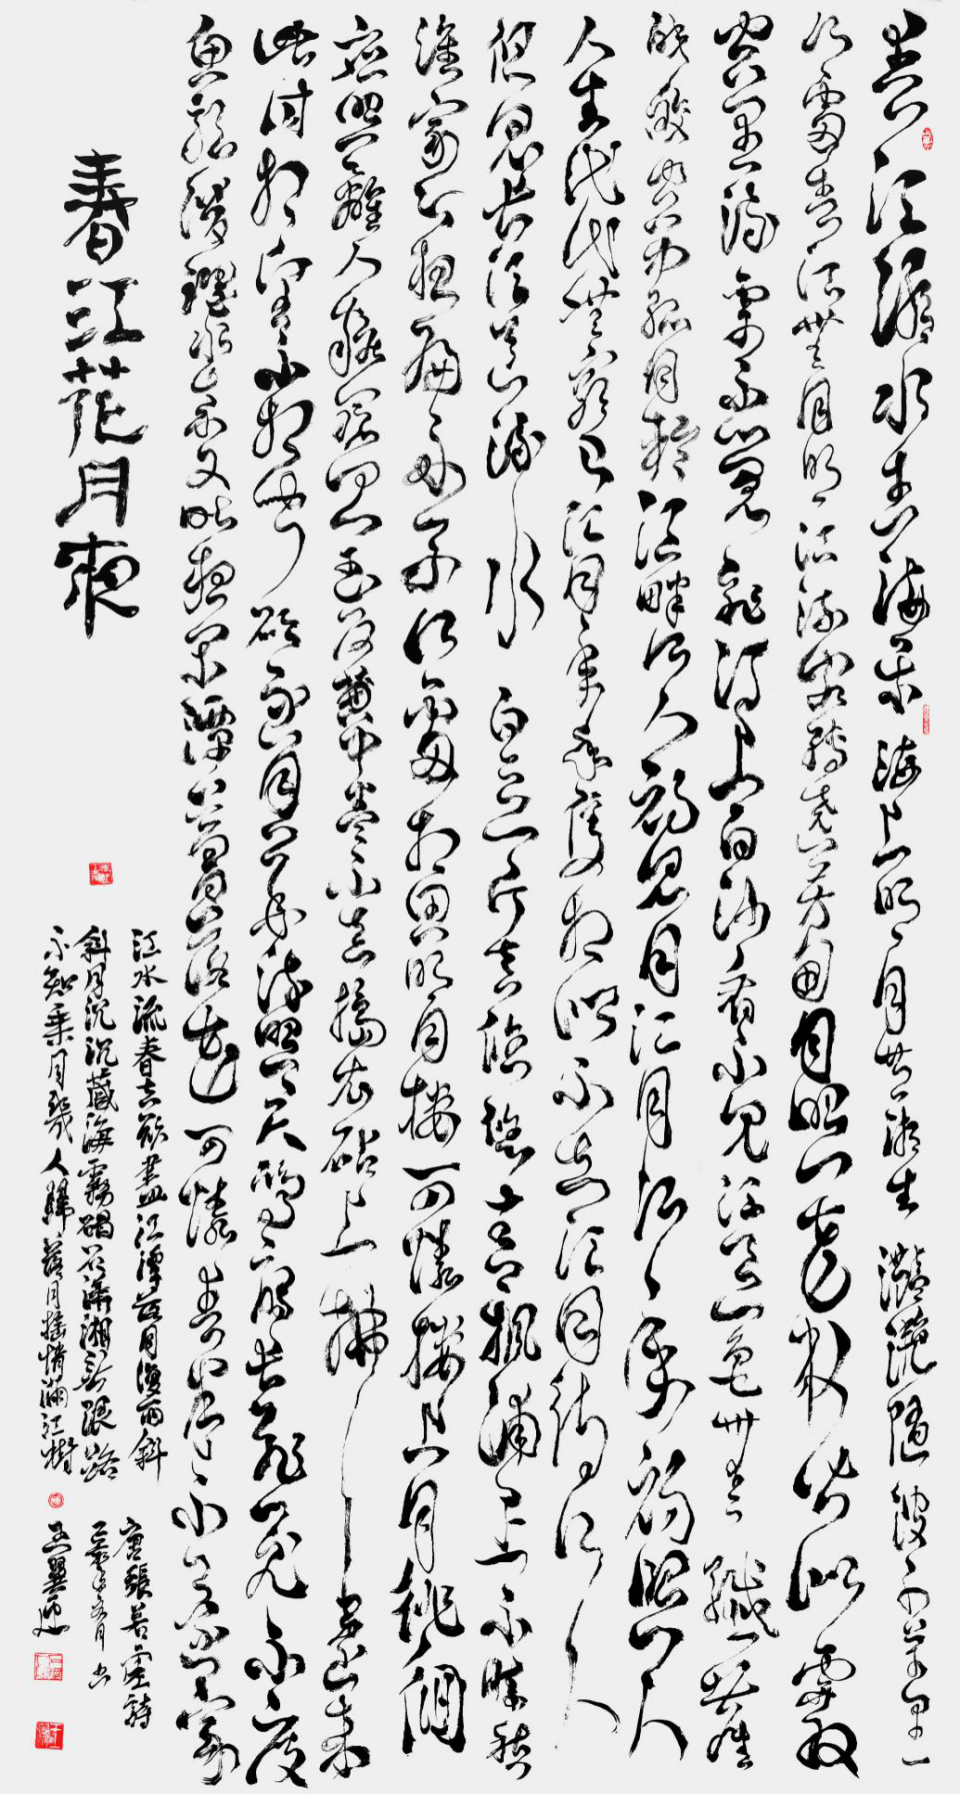 春江潮水連海平海上明月共潮生灩灩隨波千萬里
何處春江無月明江流宛轉遶芳甸月照花林皆似霰
空里流霜不覺飛汀上白沙看不見江天一色無纖塵
皎皎空中孤月輪江畔何人初見月江月何年初照人
人生代代無窮已江月年年望相似不知江月待何人
但見長江送流水白雲一片去悠悠青楓浦上不勝愁
誰家今夜扁舟子何處相思明月樓可憐樓上月徘徊
應照離人妝鏡臺玉戶簾中卷不去搗衣砧上拂還來
此時相望不相聞願逐月華流照君鴻雁長飛光不度
魚龍潛躍水成文昨夜閑潭夢落花可憐春半不還家
春江花月夜
江水流春去欲盡江潭落月復西斜
斜月沉沉藏海霧碣石瀟湘無限路
不知乘月幾人歸落月搖情滿江樹
唐張若虛詩
己亥年五月書
王翼